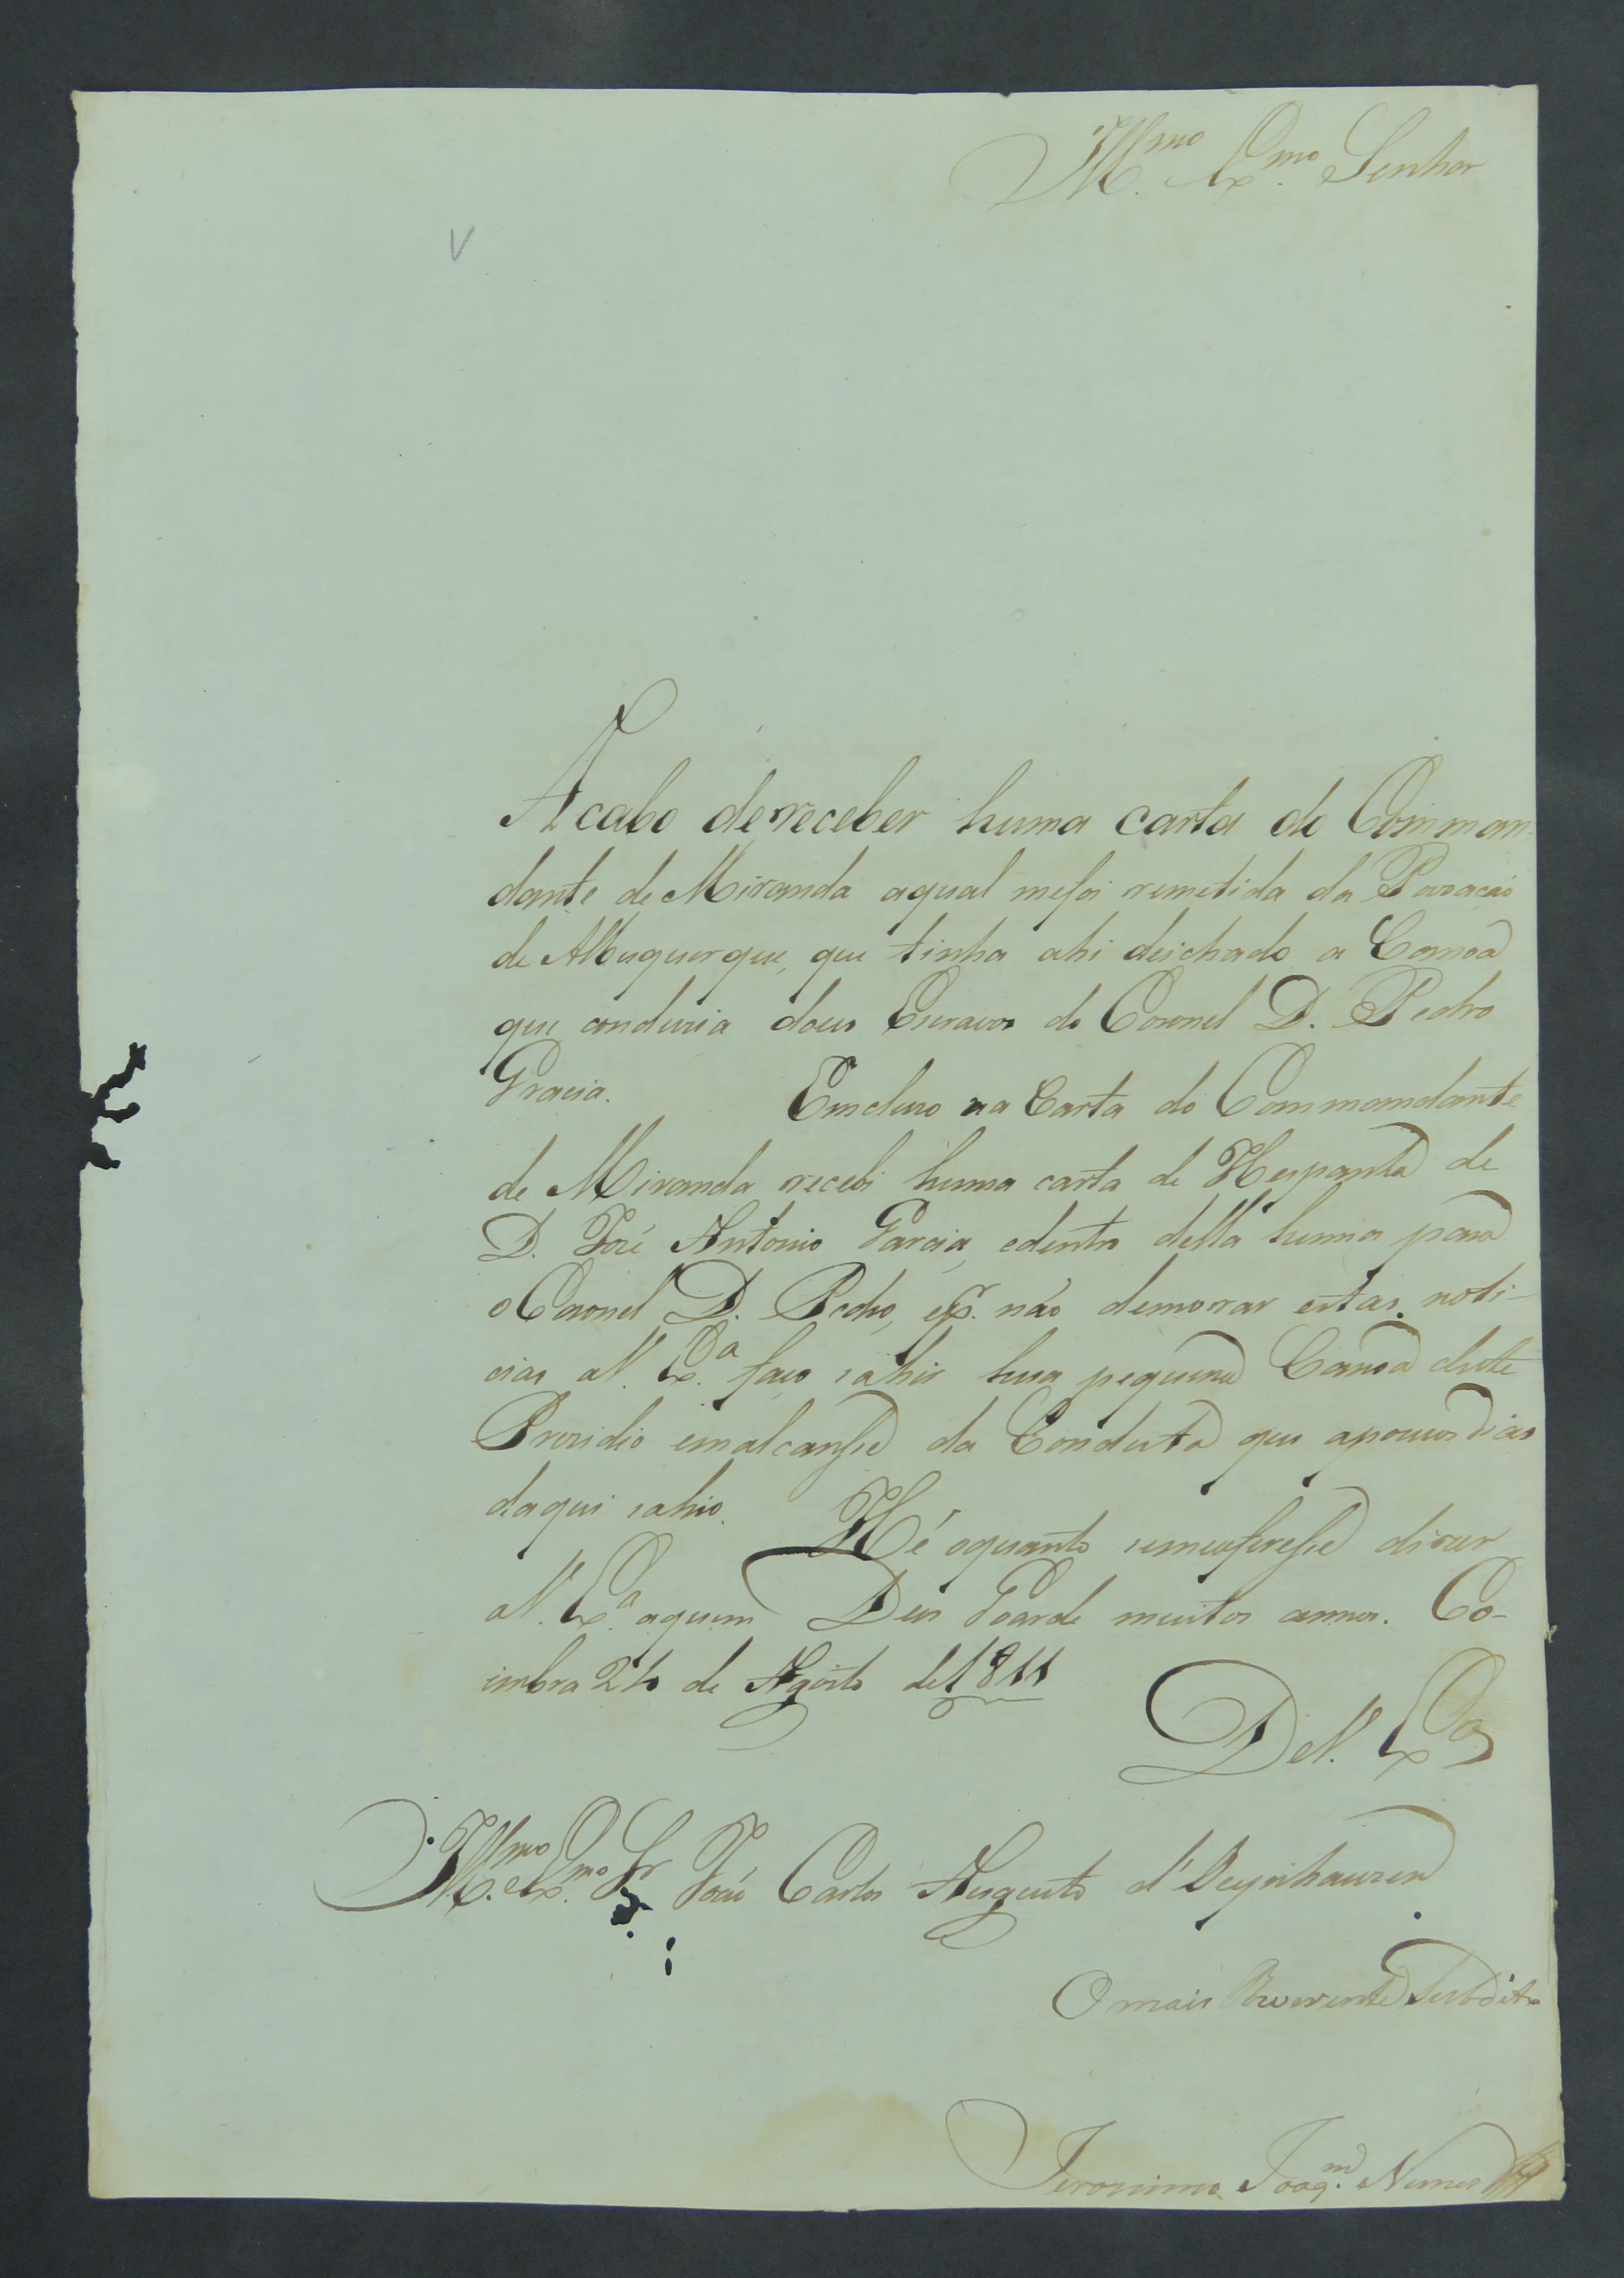 Ill.mo Ex.mo Senhor
Acabo dereceber huma carta do Comman-
dante de Miranda aqual mefoi remetida da Povoação
de Albuquerque, que tinha ahi deichado a Canoa
que conduzia dous Escravos do Coronel D. Pedro
Gracia. Emcluso na Carta do Commandante
de Miranda recebi huma carta de Hespanha de
D. José Antonio Garcia, edentro della huma para
o Coronel D. Pedro, ep.r não demorar estas noti-
cias aV. Ex.a faço sahir hua pequena Canoa deste
Prezidio emalcansse da Conducta que apoucos dias
daqui sahio. Hé oquanto semeoferesse dizer
aV. Ex.a aquem Deus Goarde muitos annos. Co-
imbra 24 de Agosto de1811
DeV. Ex.a
Ill.mo eEx.mo Sr João Carlos Augusto d'Oeynhausen
O mais Reverente Subdito
Jeronimo Joaq.m Nunes